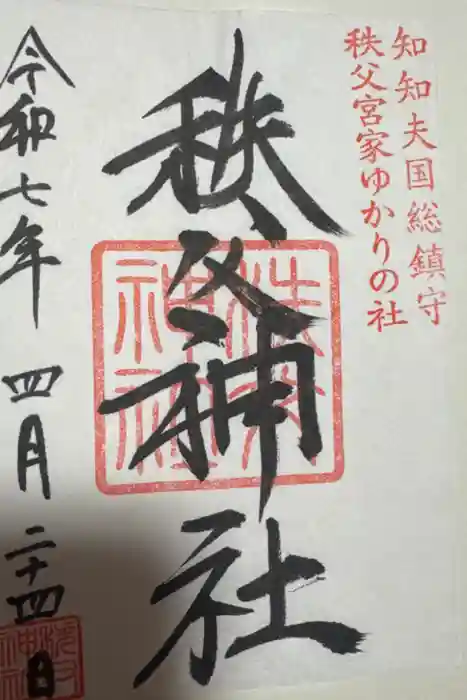 知知夫国総鎮守
秩父宮家ゆかりの社
秩父神社
秩父神社
令和七年 四月 二十四日
秩父神社